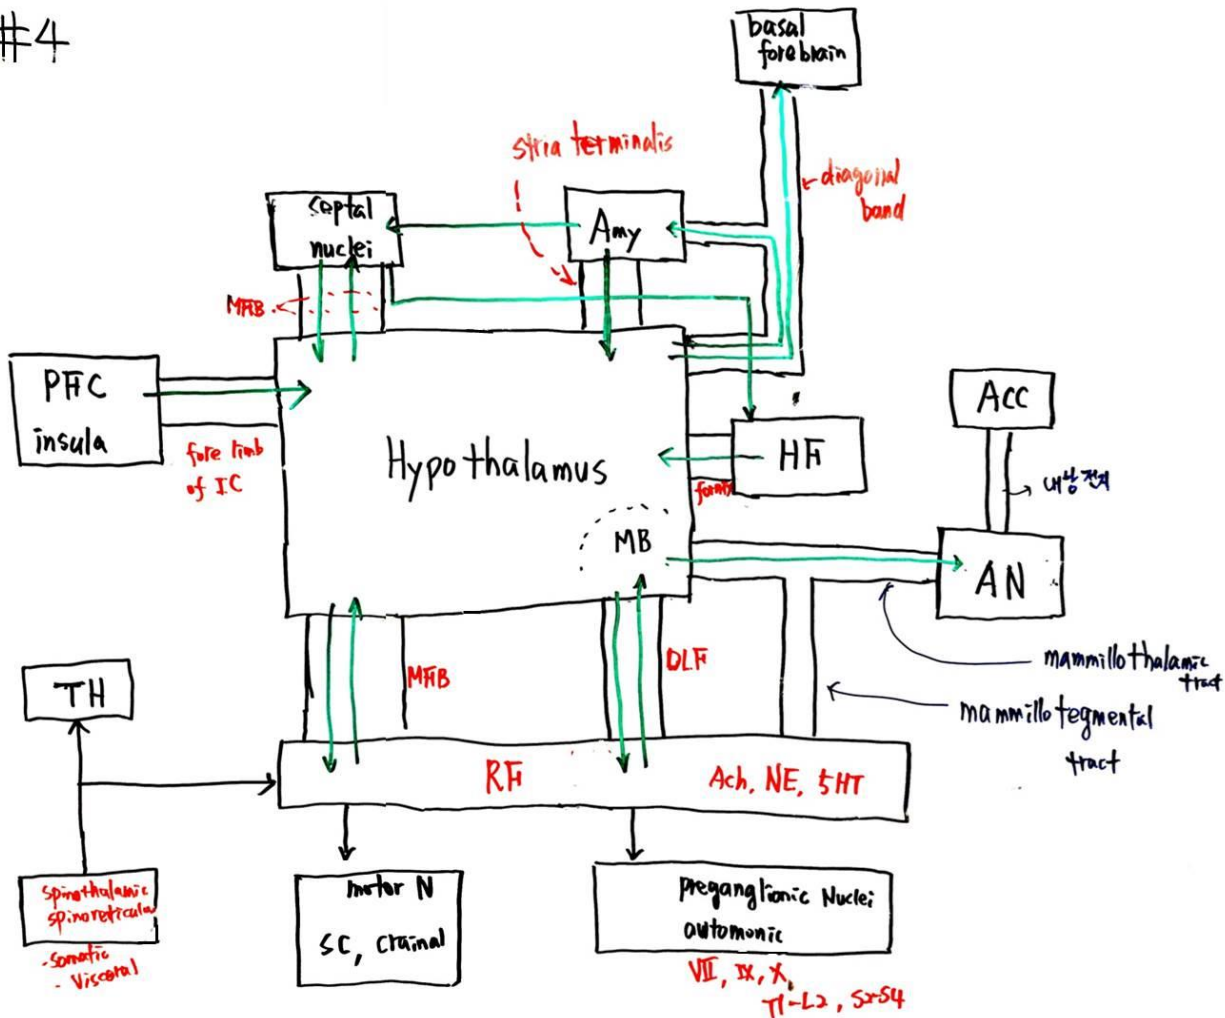 #4
basal
forebrain
stria terminalis
diagonal
band
septal
nuclei
Amy
MFB
PFC
insula
fore limb
of IC
Hypothalamus
HF
fornix
ACC
내낭 전지
MB
AN
MFB
DLF
mammillothalamic
tract
mammillotegmental
tract
TH
RF
Ach, NE, 5HT
spinothalamic
spinoreticular
- Somatic
- Visceral
motor N
SC, crainal
preganglionic Nuclei
automonic
VII, IX, X,
T1-L2, S2-S4